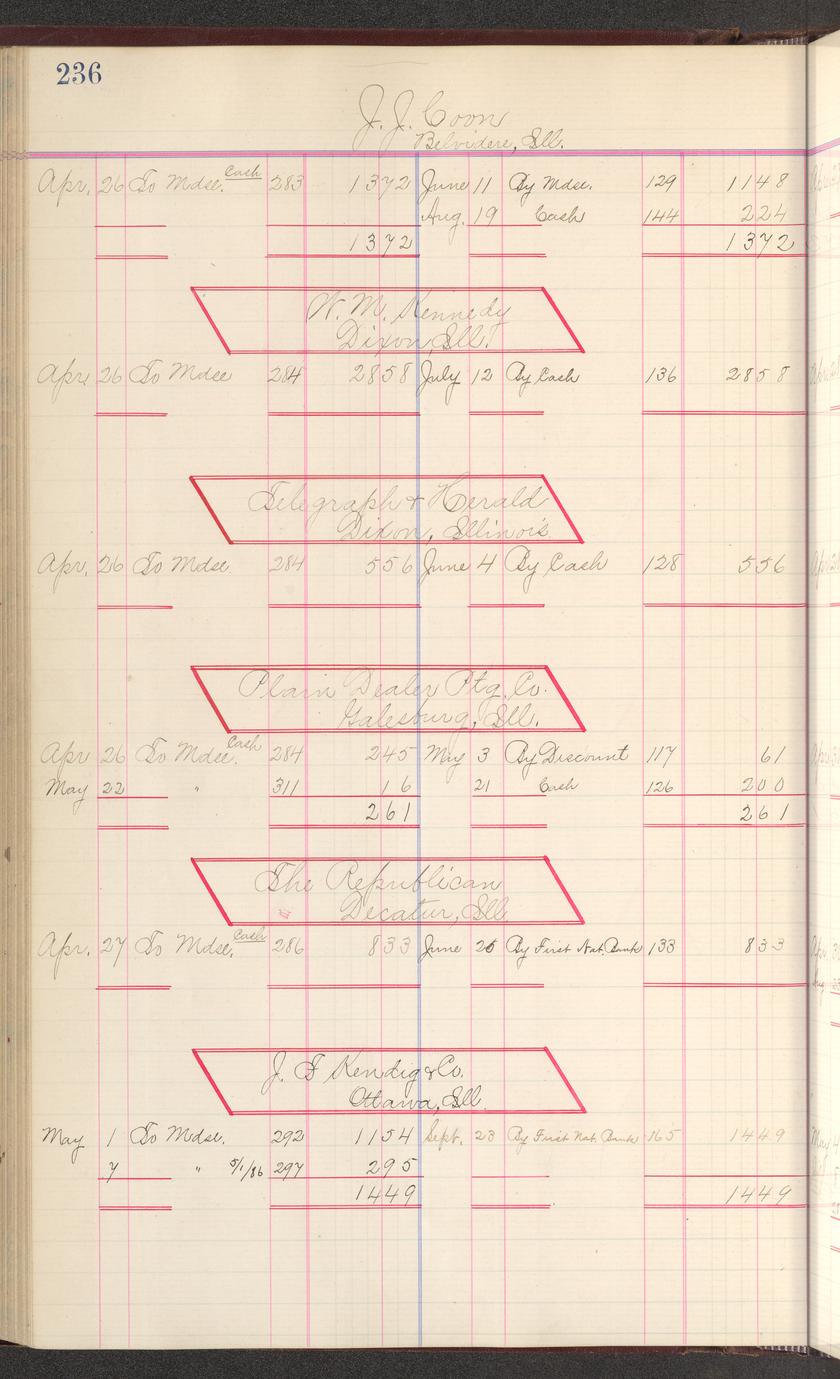 236
J. J. Coon
Belvidere, Ill.
Apr. 26 To Mdse. Cash 283 1372 June 11 By Mdse. 129 1148
Aug. 19 Cash 144 224
1372 1372
W. M. Kennedy
Dixon, Ill.
Apr. 26 To Mdse 284 2858 July 12 By Cash 136 2858
Telegraph & Herald
Dixon, Illinois.
Apr. 26 To Mdse. 284 556 June 4 By Cash 128 556
Plain Dealer Ptg. Co.
Galesburg, Ill.
Apr 26 To Mdse. Cash 284 245 May 3 By Discount 117 61
May 22 " 311 16 21 Cash 126 200
261 261
The Republican
Decatur, Ill.
Apr. 27 To Mdse. Cash 286 833 June 26 By First Nat. Bank 133 833
J. F Kendig & Co.
Ottawa, Ill.
May 1 To Mdse. 292 1154 Sept. 23 By First Nat. Bank 165 1449
7 " 5/1/86 297 295
1449 1449